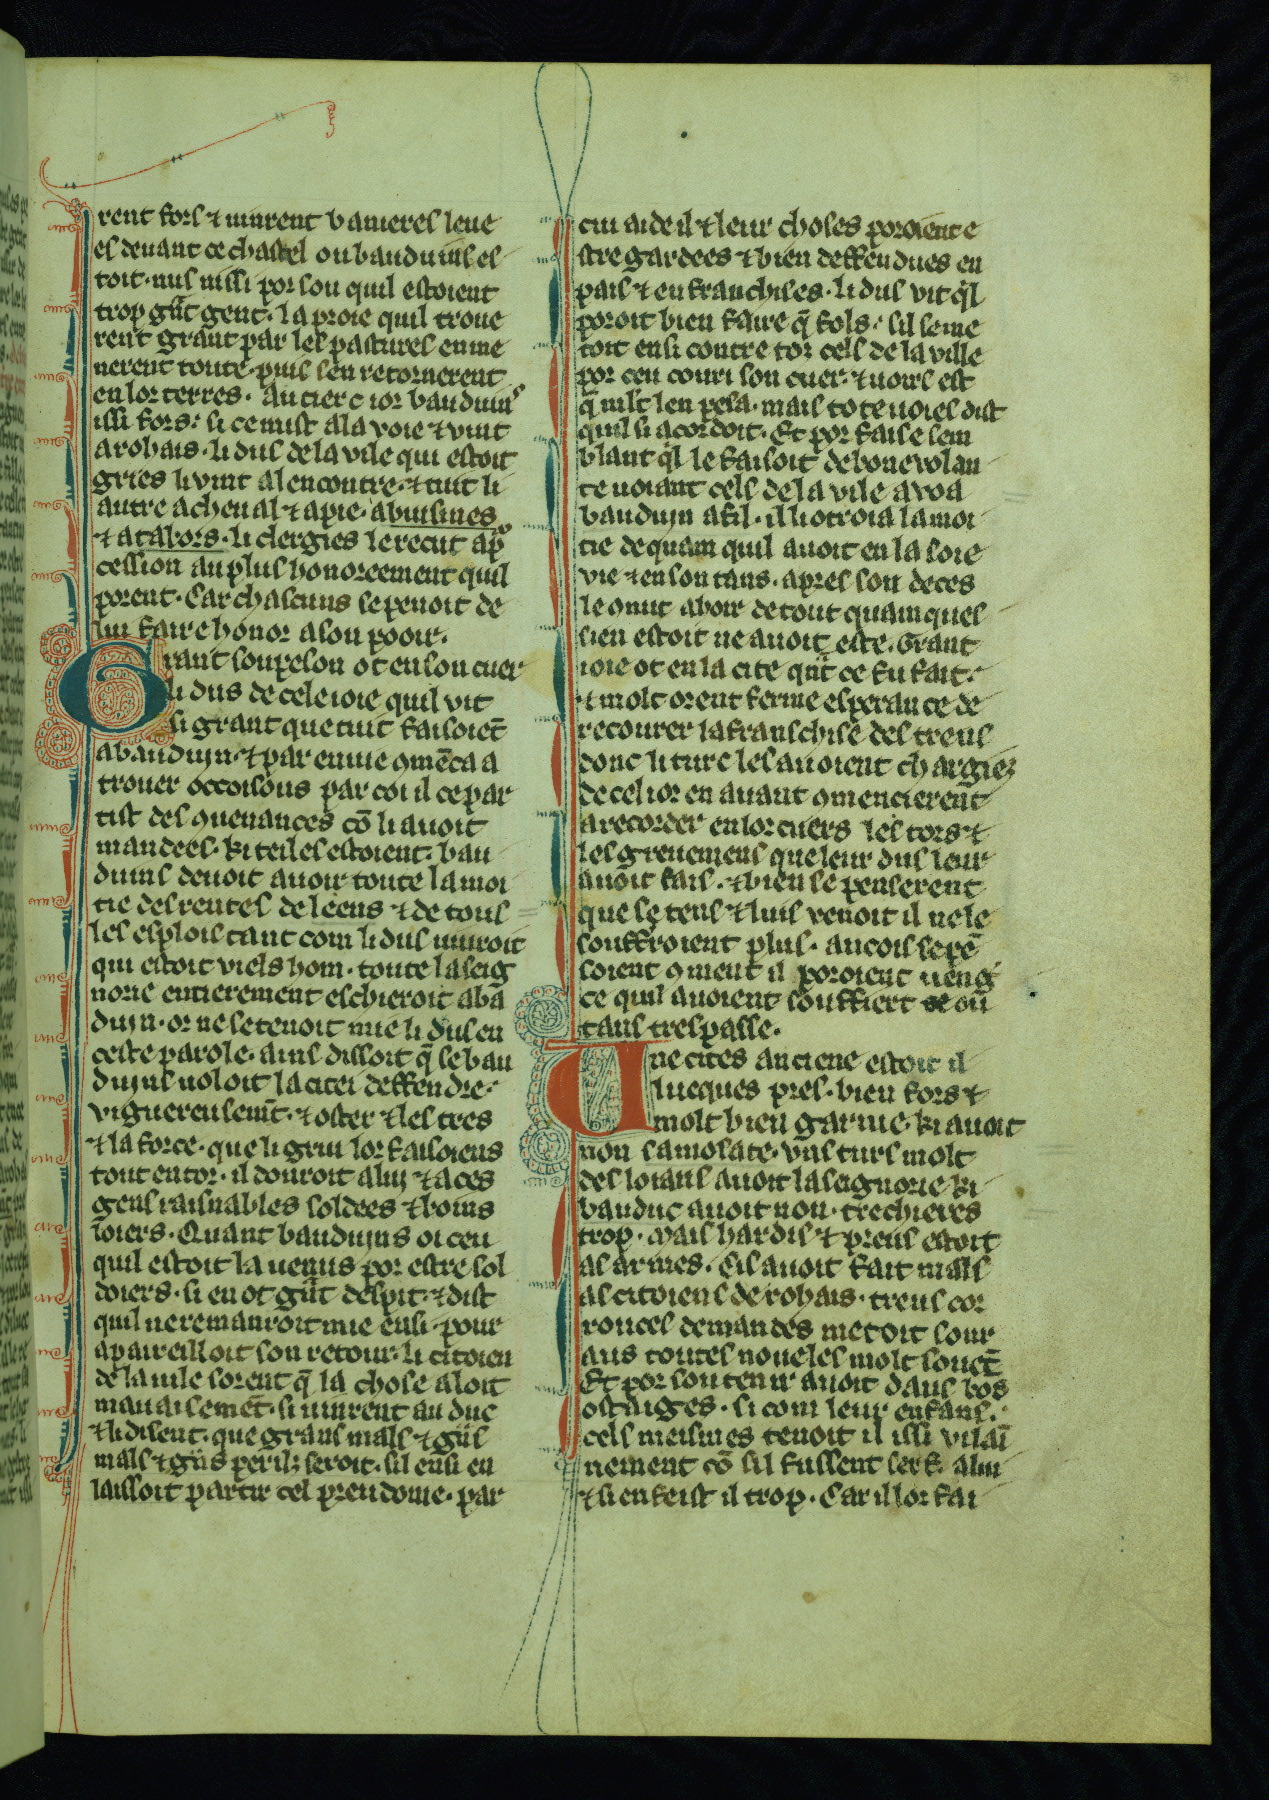 rent fors ⁊ uinrent banieres leue
es deuant ce chastel ou bauduins es
toit. nus nissi por sou quil estoient
trop gͣnt gent. la proie quil troue
rent grant par les pastures enme
nerent toute. puis sen retornerent
en lor terres. Au tierc ior bauduins
issi fors. si ce mist ala voie ⁊ vint
a rohais. li dus de la vile qui estoit
gries li vint al encontre. ⁊ tuit li
autre a cheual ⁊ a pie. a buisines
⁊ a tabors. li clergies le recut a p̄o
cession au plus honoreement quil
porent. Car chascuns se penoit de
lui faire honor a son pooir.
Grant soupeson ot en son cuer
li dus de cele ioie quil vit
si grant que tuit faisoiēt
a bauduyn. ⁊ par enuie ꝯmēca a
trouer occoisons par coi il ce par
tist des ꝯuenances cō li auoit
mandees. ki teiles estoient. bau
duins deuoit auoir toute la moi
tie des rentes de leens ⁊ de tous
les esplois tant com li dus uiuroit
qui estoit viels hom. toute la seig
norie entierement eschieroit a ba
duyn. or ne se tenoit mie li dus en
ceste parole. ains dissoit q̄ se bau
duyns uoloit la citei deffendre.
viguereusemt̄. ⁊ oster ⁊ les tres
⁊ la force. que li griu lor faisoiens
tout entor. il donroit a luy ⁊ a ces
gens raisnables soldees ⁊ boins
loiers. Quant bauduyns oi ceu
quil estoit la uenus por estre sol
doiers. si en ot gͣnt despit. ⁊ dist
quil ne remanroit mie ensi. pour
apaireilloit son retour. li citoien
de la uile sorent q̄ la chose aloit
mauaisemēt. si uinrent au duc
⁊ li disent. que grans mals ⁊ gͣns
mals ⁊ gͣns perils seroit. sil ensi en
laissoit partir cel preudome. par
cui aide il ⁊ leur choses poroient e
stre gardees ⁊ bien deffendues en
pais ⁊ en franchises. li dus vit qͥl
poroit bien faire q̄ fols. sil se me
toit ensi contre tor cels de la ville
por ceu couri son cuer. ⁊ uoirs est
q̄ mlt̄ len pesa. mais tote uoies dist
quil si acordoit. Et por faise sem
blant qͥl le faisoit de bone volan
te uoiant cels de la vile avoa
bauduyn a fil. il li otroia la moi
tie de quam quil auoit en la soie
vie ⁊ en son tans. apres son deces
le onut aboir de tout quamques
sien estoit ne auoit este. Grant
ioie ot en la cite qn̄t ce fu fait.
⁊ molt orent ferme esperance de
recourer la franschise des treus
donc li turc les auoient chargiez
de cel ior en auant ꝯmencierent
a recorder en lor cuers les tors ⁊
les greuemens que leur dus leur
auoit fais. ⁊ bien se penserent
que se tens ⁊ luis venoit il ne le
souffroient plus. ancois se pē
soient ꝯment il poroient ueng̾
ce quil auoient souffiert ou
tans trespasse.
Une cites anciene estoit il
lueques pres. bien fors ⁊
molt bien garnie. ki auoit
non samosate. vns turs molt
des loians auoit la seignorie ki
bauduc auoit non. trechieres
trop. Mais hardis ⁊ preus estoit
as armes. Cis auoit fait mals
as citoiens de rohais. treus cor
rouces demandes metoit sour
aus toutes noueles molt souēt
Et por soutenir auoit daus bos
ostaiges. si com leur enfans.
cels meismes tenoit il issi vilai
nement cō sil fussent serf. a lui
⁊ si en feist il trop. Car il lor fai